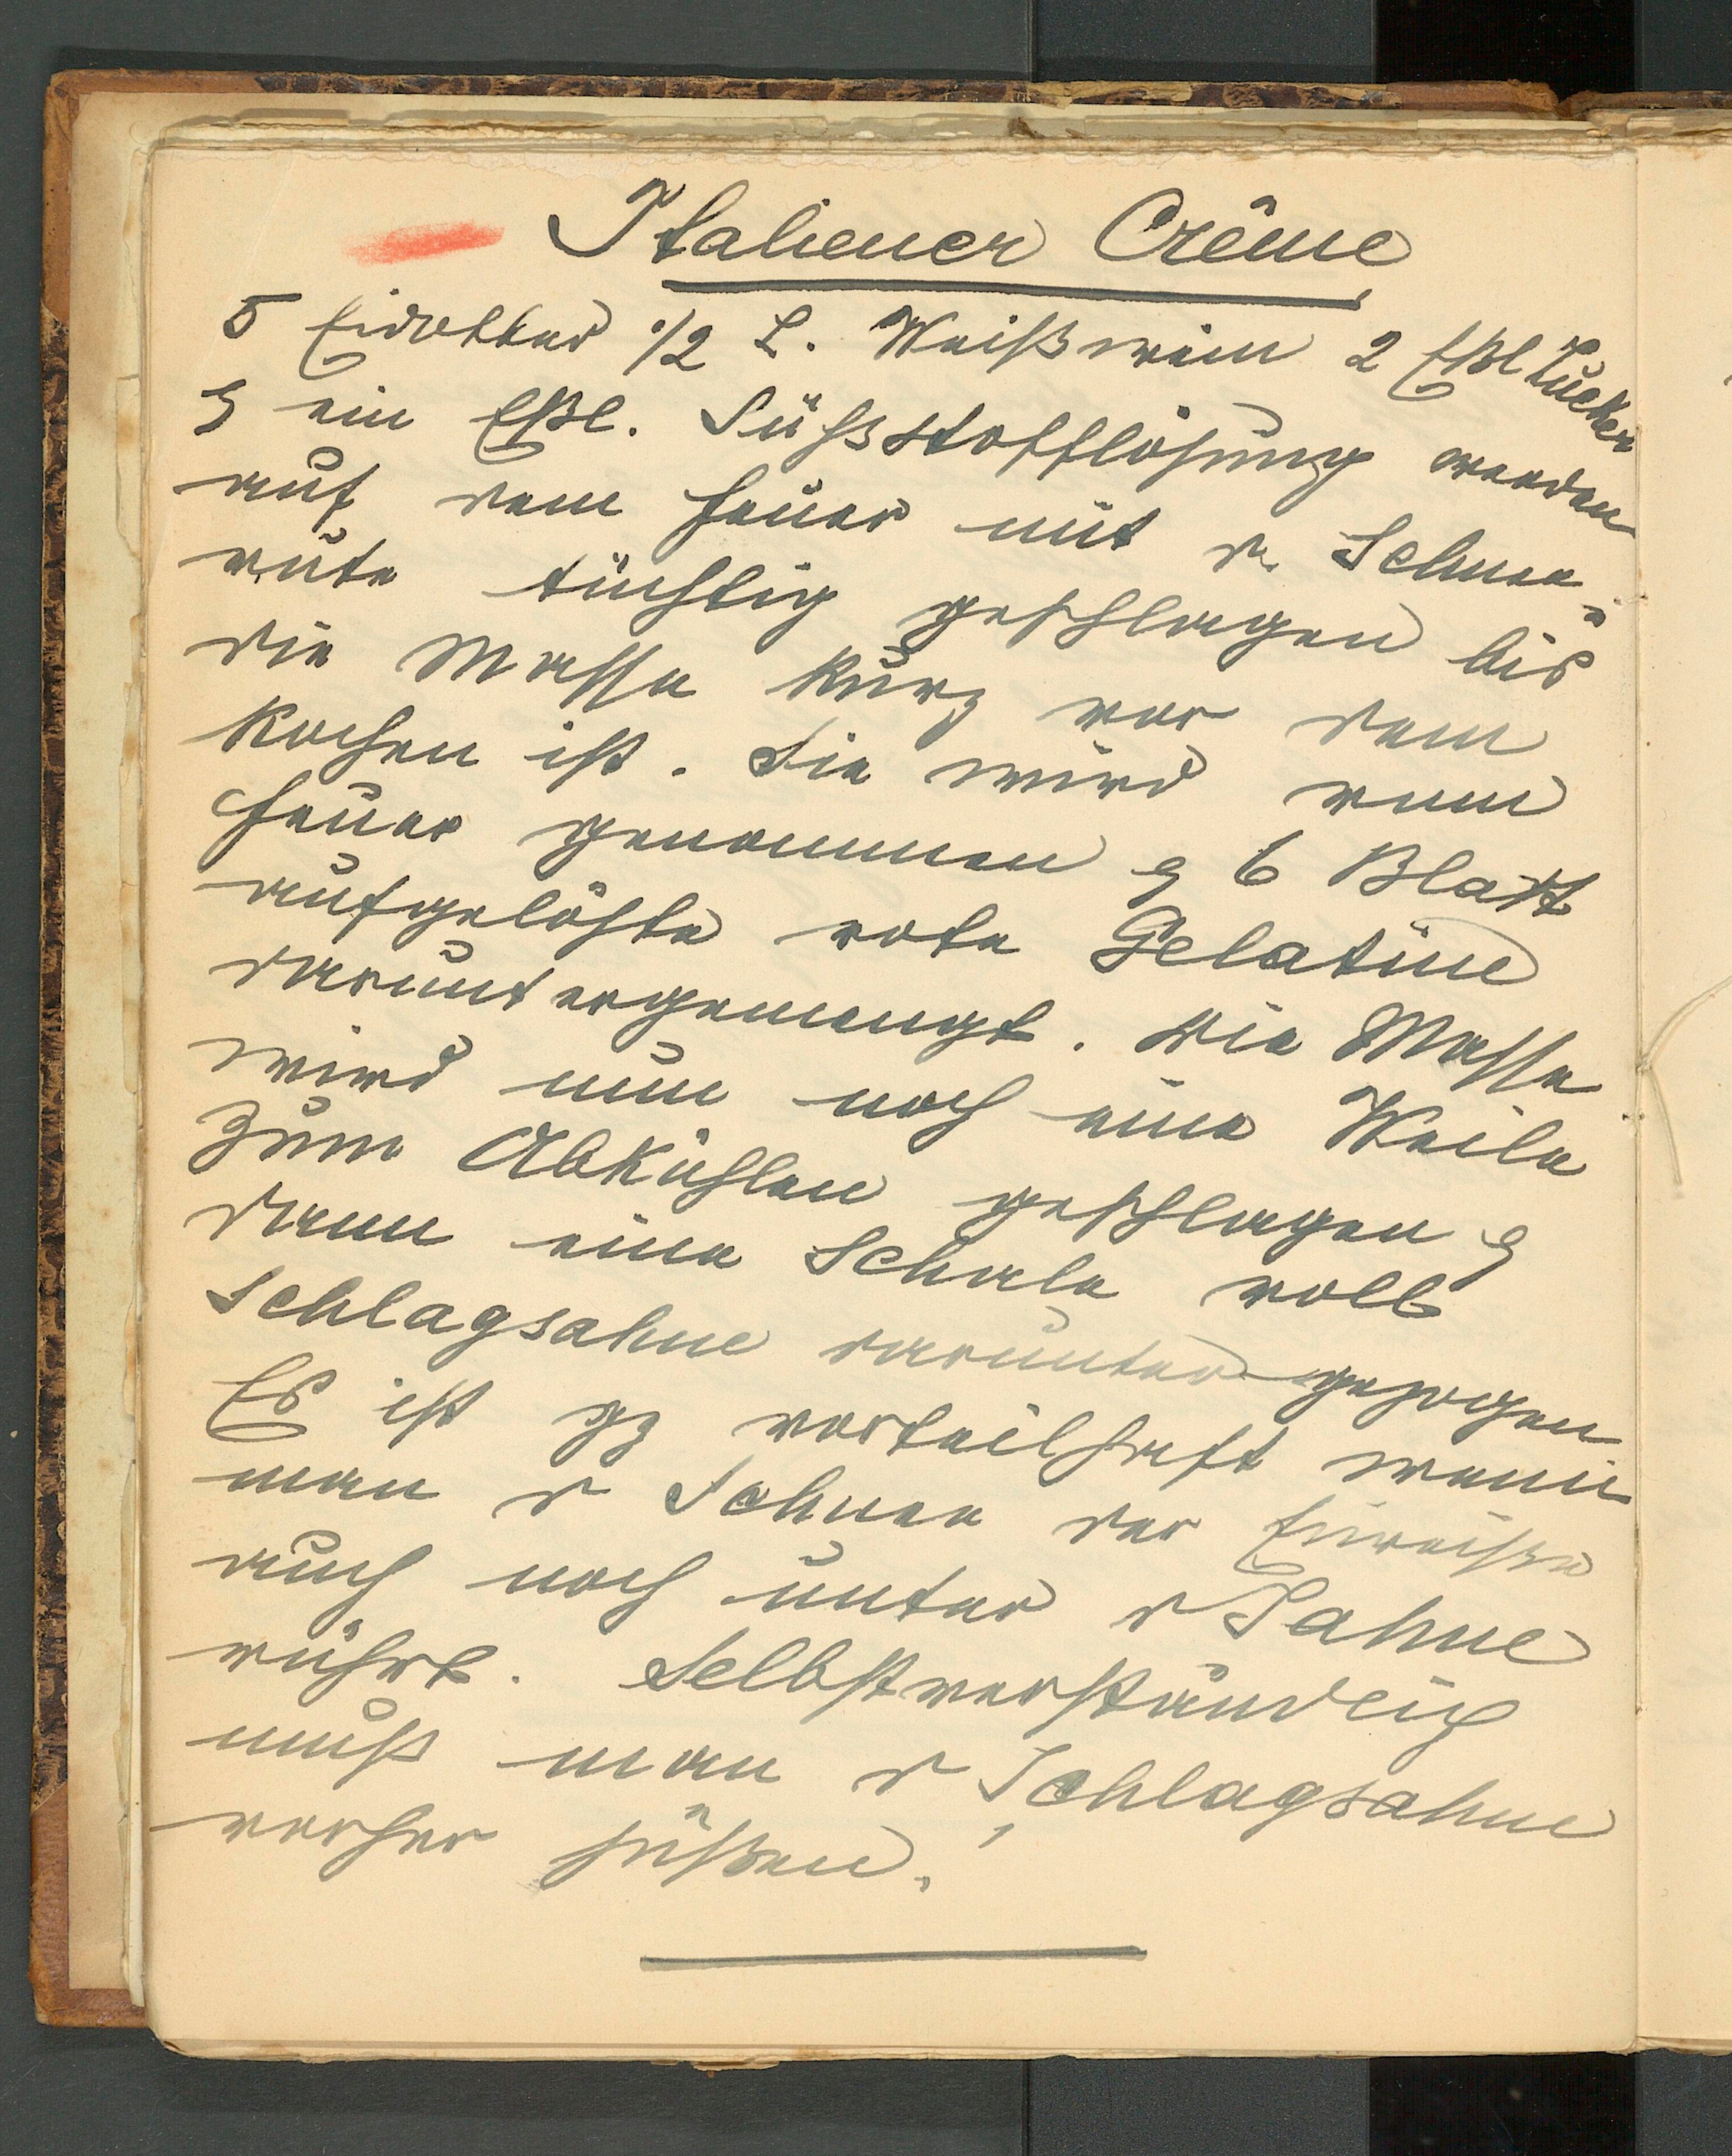 Italiener Crême
5 Eidotter 1/2 L. Weißwein 2 Eßl Zucker
& ein Eßl. Süßstofflösung werden
auf dem Feuer mit d. Schnee=
rute tüchtig geschlagen bis
die Masse kurz vor dem
Kochen ist. Sie wird vom
Feuer genommen & 6 Blatt
aufgelöste rote Gelatine
daruntergemengt. Die Masse
wird nun noch eine Weile
zum Abkühlen geschlagen &
dann eine Schale voll
Schlagsahne darunter gezogen
Es ist gz vorteilhaft wenn
man d Schnee der Eiweiße
auch noch unter d Sahne
rührt. Selbstverständlich
muß man d Schlagsahne
vorher süßen.